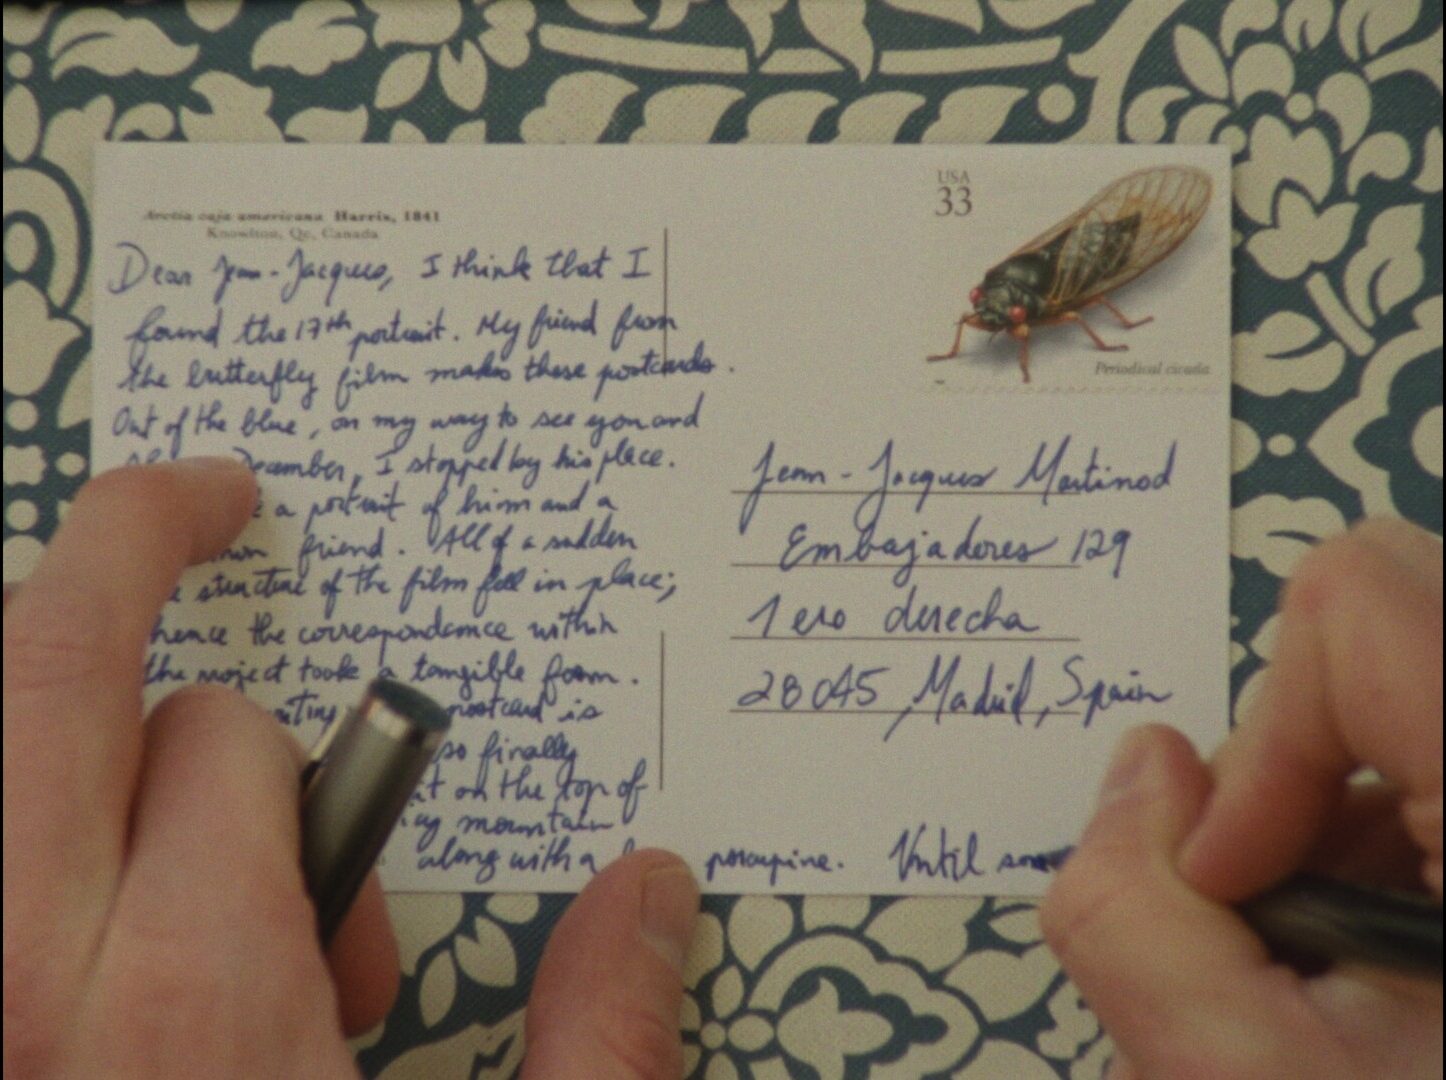 Arctia caja americana Harris, 1841
Knowlton, Qc, Canada
Dear Jean-Jacques, I think that I
found the 17th portrait. My friend from
the butterfly film makes these postcards.
Out of the blue, on my way to see you and
December, I stopped by his place.
a portrait of him and a
friend. All of a sudden
structure of the film fell in place;
hence the correspondance within
the project took a tangible form.
postcard is
so finally
on the top of
mountain
along with a porcupine. Until
USA
33
Periodical cicada
Jean-Jacques Martinod
Embajadores 129
1ero derecha
28045, Madrid, Spain